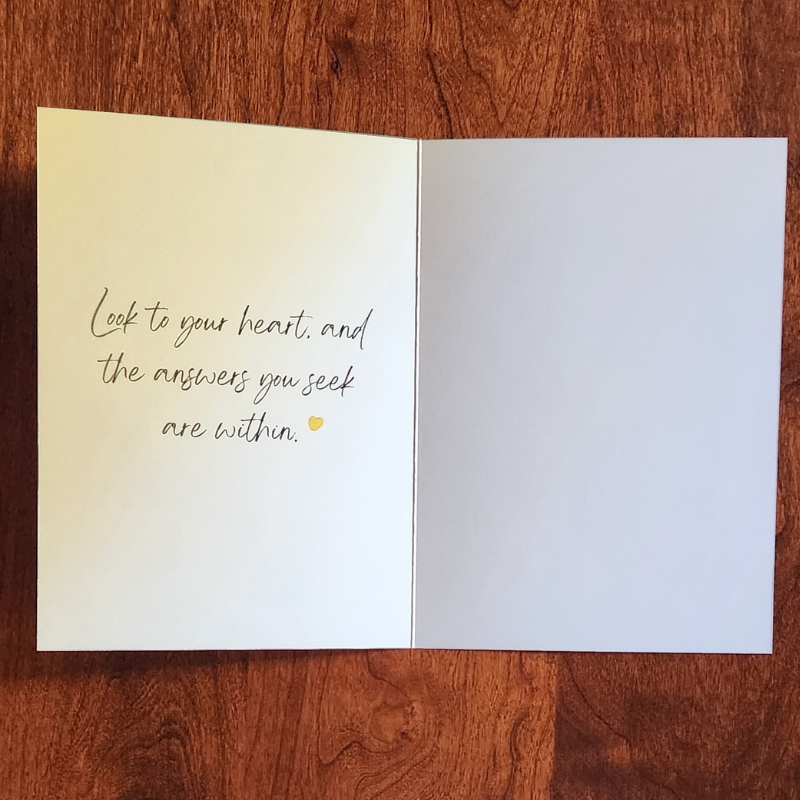 Look to your heart, and
the answers you seek
are within.